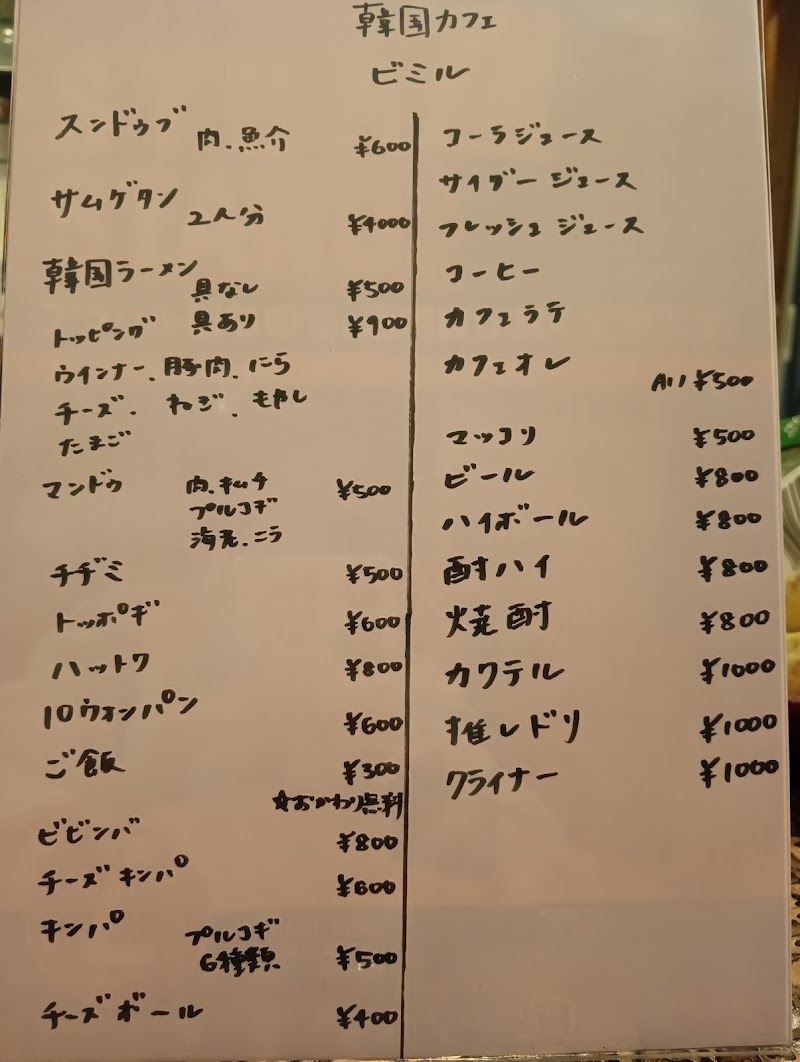 韓国カフェ
ビミル
スンドゥブ 肉、魚介 ¥600
サムゲタン 2人分 ¥4000
韓国ラーメン 具なし ¥500
トッピング 具あり ¥900
ウインナー、豚肉、にら
チーズ、ねぎ、もやし
たまご
マンドゥ 肉、キムチ ¥500
プルコギ
海老、ニラ
チヂミ ¥500
トッポギ ¥600
ハットク ¥800
10ウォンパン ¥600
ご飯 ¥300
☆おかわり無料
ビビンバ ¥800
チーズキンパ ¥600
キンパ プルコギ
6種類 ¥500
チーズボール ¥400
コーラジュース
サイダージュース
フレッシュジュース
コーヒー
カフェラテ
カフェオレ
All ¥500
マッコリ ¥500
ビール ¥800
ハイボール ¥800
酎ハイ ¥800
焼酎 ¥800
カクテル ¥1000
推しドリ ¥1000
クライナー ¥1000